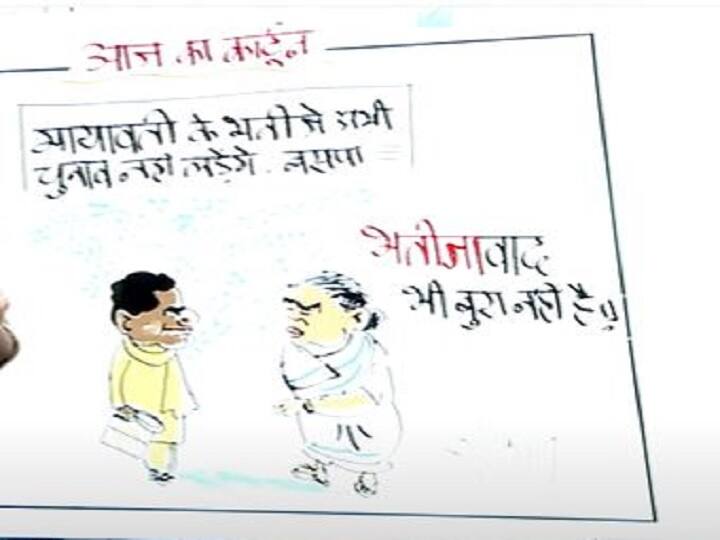 आज का कार्टून
मायावती के भतीजे अभी
चुनाव नहीं लड़ेंगे. बसपा
भतीजावाद
भी बुरा नहीं है!!